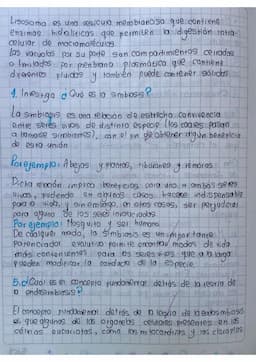 Lisosoma es una vesícula membranosa que contiene
enzimas hidrolíticas que permiten la digestión intra-
celular de macromoléculas
las vacuolas por su parte son compartimentos cerrados
o limitados por membrana plasmática que contiene
diferentes fluidos y también puede contener sólidos
1. Investiga ¿Qué es la simbiosis?
La simbiosis es una relación de estrecha convivencia
entre seres vivos de distinta especie (los cuales pasan
a llamarse simbiontes), con el fin de obtener algún beneficio
de esta unión
Por ejemplo: Abejas y plantas, tiburones y rémoras.
Dicha relación implica beneficios para uno o ambos seres
vivos, pudiendo en algunos casos volverse indispensable
para la vida, y sin embargo, en otros casos, ser perjudicial
para alguno de los seres involucrados
Por ejemplo: Mosquito y ser humano
De cualquier modo, la simbiosis es un importante
Potenciador evolutivo permite encontrar modos de vida
más convenientes para los seres vivos que a la larga
pueden modificar la conducta de la especie.
5. ¿Cuál es el concepto fundamental detrás de la teoría de
la endosimbiosis?
El concepto fundamental detrás de la teoría de la endosimbiosis
es que algunos de los organelos celulares presentes en las
células eucariotas, como las mitocondrias y los cloroplas